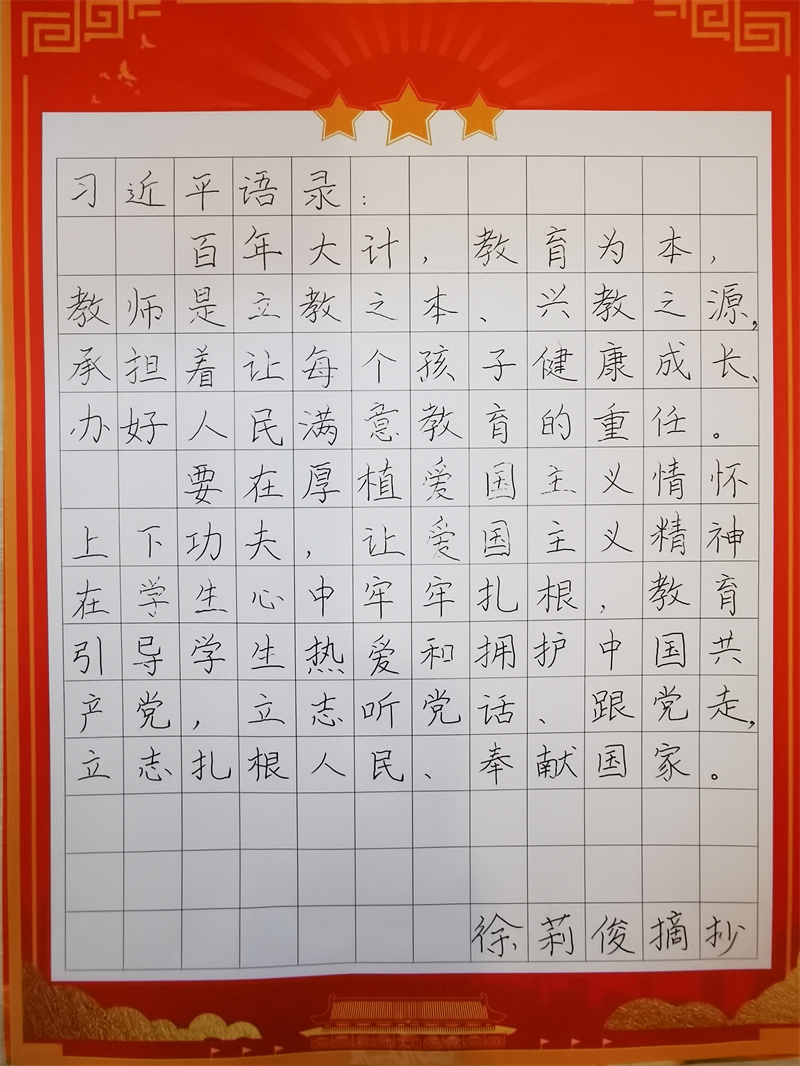 习近平语录：
百年大计，教育为本，
教师是立教之本、兴教之源，
承担着让每个孩子健康成长、
办好人民满意教育的重任。
要在厚植爱国主义情怀
上下功夫，让爱国主义精神
在学生心中牢牢扎根，教育
引导学生热爱和拥护中国共
产党，立志听党话、跟党走，
立志扎根人民、奉献国家。
徐莉俊摘抄